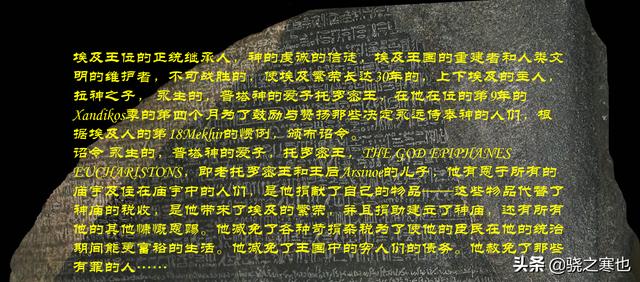 埃及王位的正统继承人，神的虔诚的信徒，埃及王国的重建者和人类文
明的维护者，不可战胜的，使埃及繁荣长达30年的，上下埃及的主人，
拉神之子，永生的，普塔神的爱子托罗密王，在他在位的第9年的
Xandikos季的第四个月为了鼓励与赞扬那些决定永远侍奉神的人们，根
据埃及人的第18Mekhir的惯例，颁布诏令。
诏令 永生的，普塔神的爱子，托罗密王，THE GOD EPIPHANES
EUCHARISTONS，即老托罗密王和王后Arsinoe的儿子，他有恩于所有的
庙宇及住在庙宇中的人们，是他捐献了自己的物品——这些物品代替了
神庙的税收，是他带来了埃及的繁荣，并且捐助建立了神庙，还有所有
他的其他慷慨恩赐。他减免了各种苛捐杂税为了使他的臣民在他的统治
期间能更富裕的生活。他减免了王国中的穷人们的债务。他赦免了那些
有罪的人……
头条 @骁之寒也